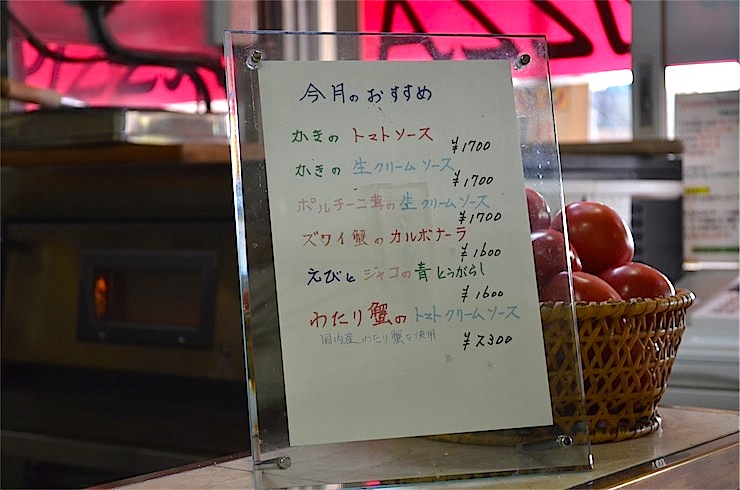 今月のおすすめ
かきの トマトソース
¥1700
かきの 生クリームソース
¥1700
ポルチーニ茸の生クリームソース
¥1700
ズワイ蟹のカルボナーラ
¥1600
えびと ジャコの青とうがらし
¥1600
わたり蟹のトマトクリームソース
国内産わたり蟹を使用
¥2300